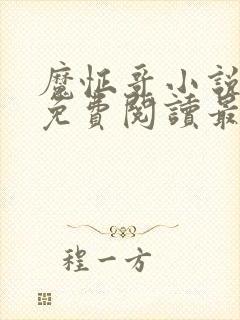 魔怔哥小說
免費閱讀最
程一方